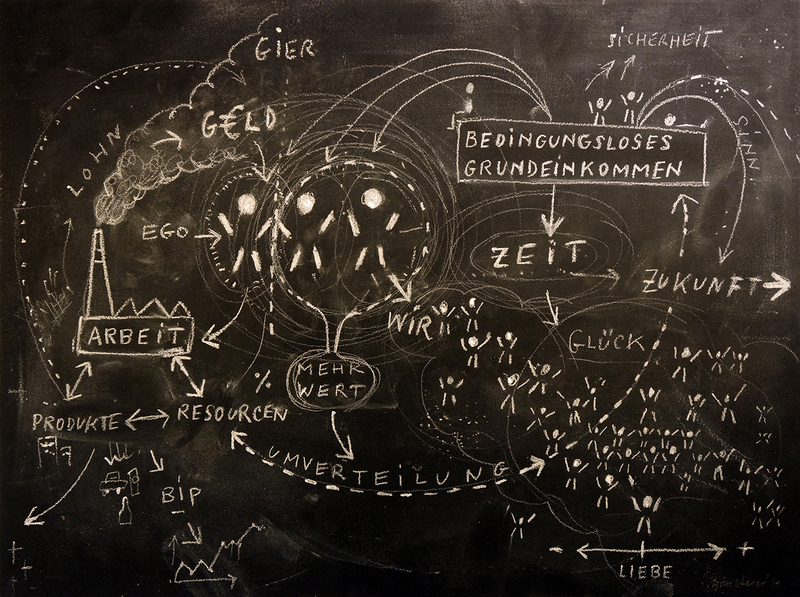 SiCHERHEiT
GiER
G€LD
LOHN
BEDiNGUNGSLOSES
GRUNDEiNKOMMEN
SiNN
EGO
ZEiT
ZUKUNFT
WiR
ARBEiT
GLÜCK
MEHR
WERT
%
PRODUKTE
RESOURCEN
UMVERTEILUNG
BiP
- +
LiEBE